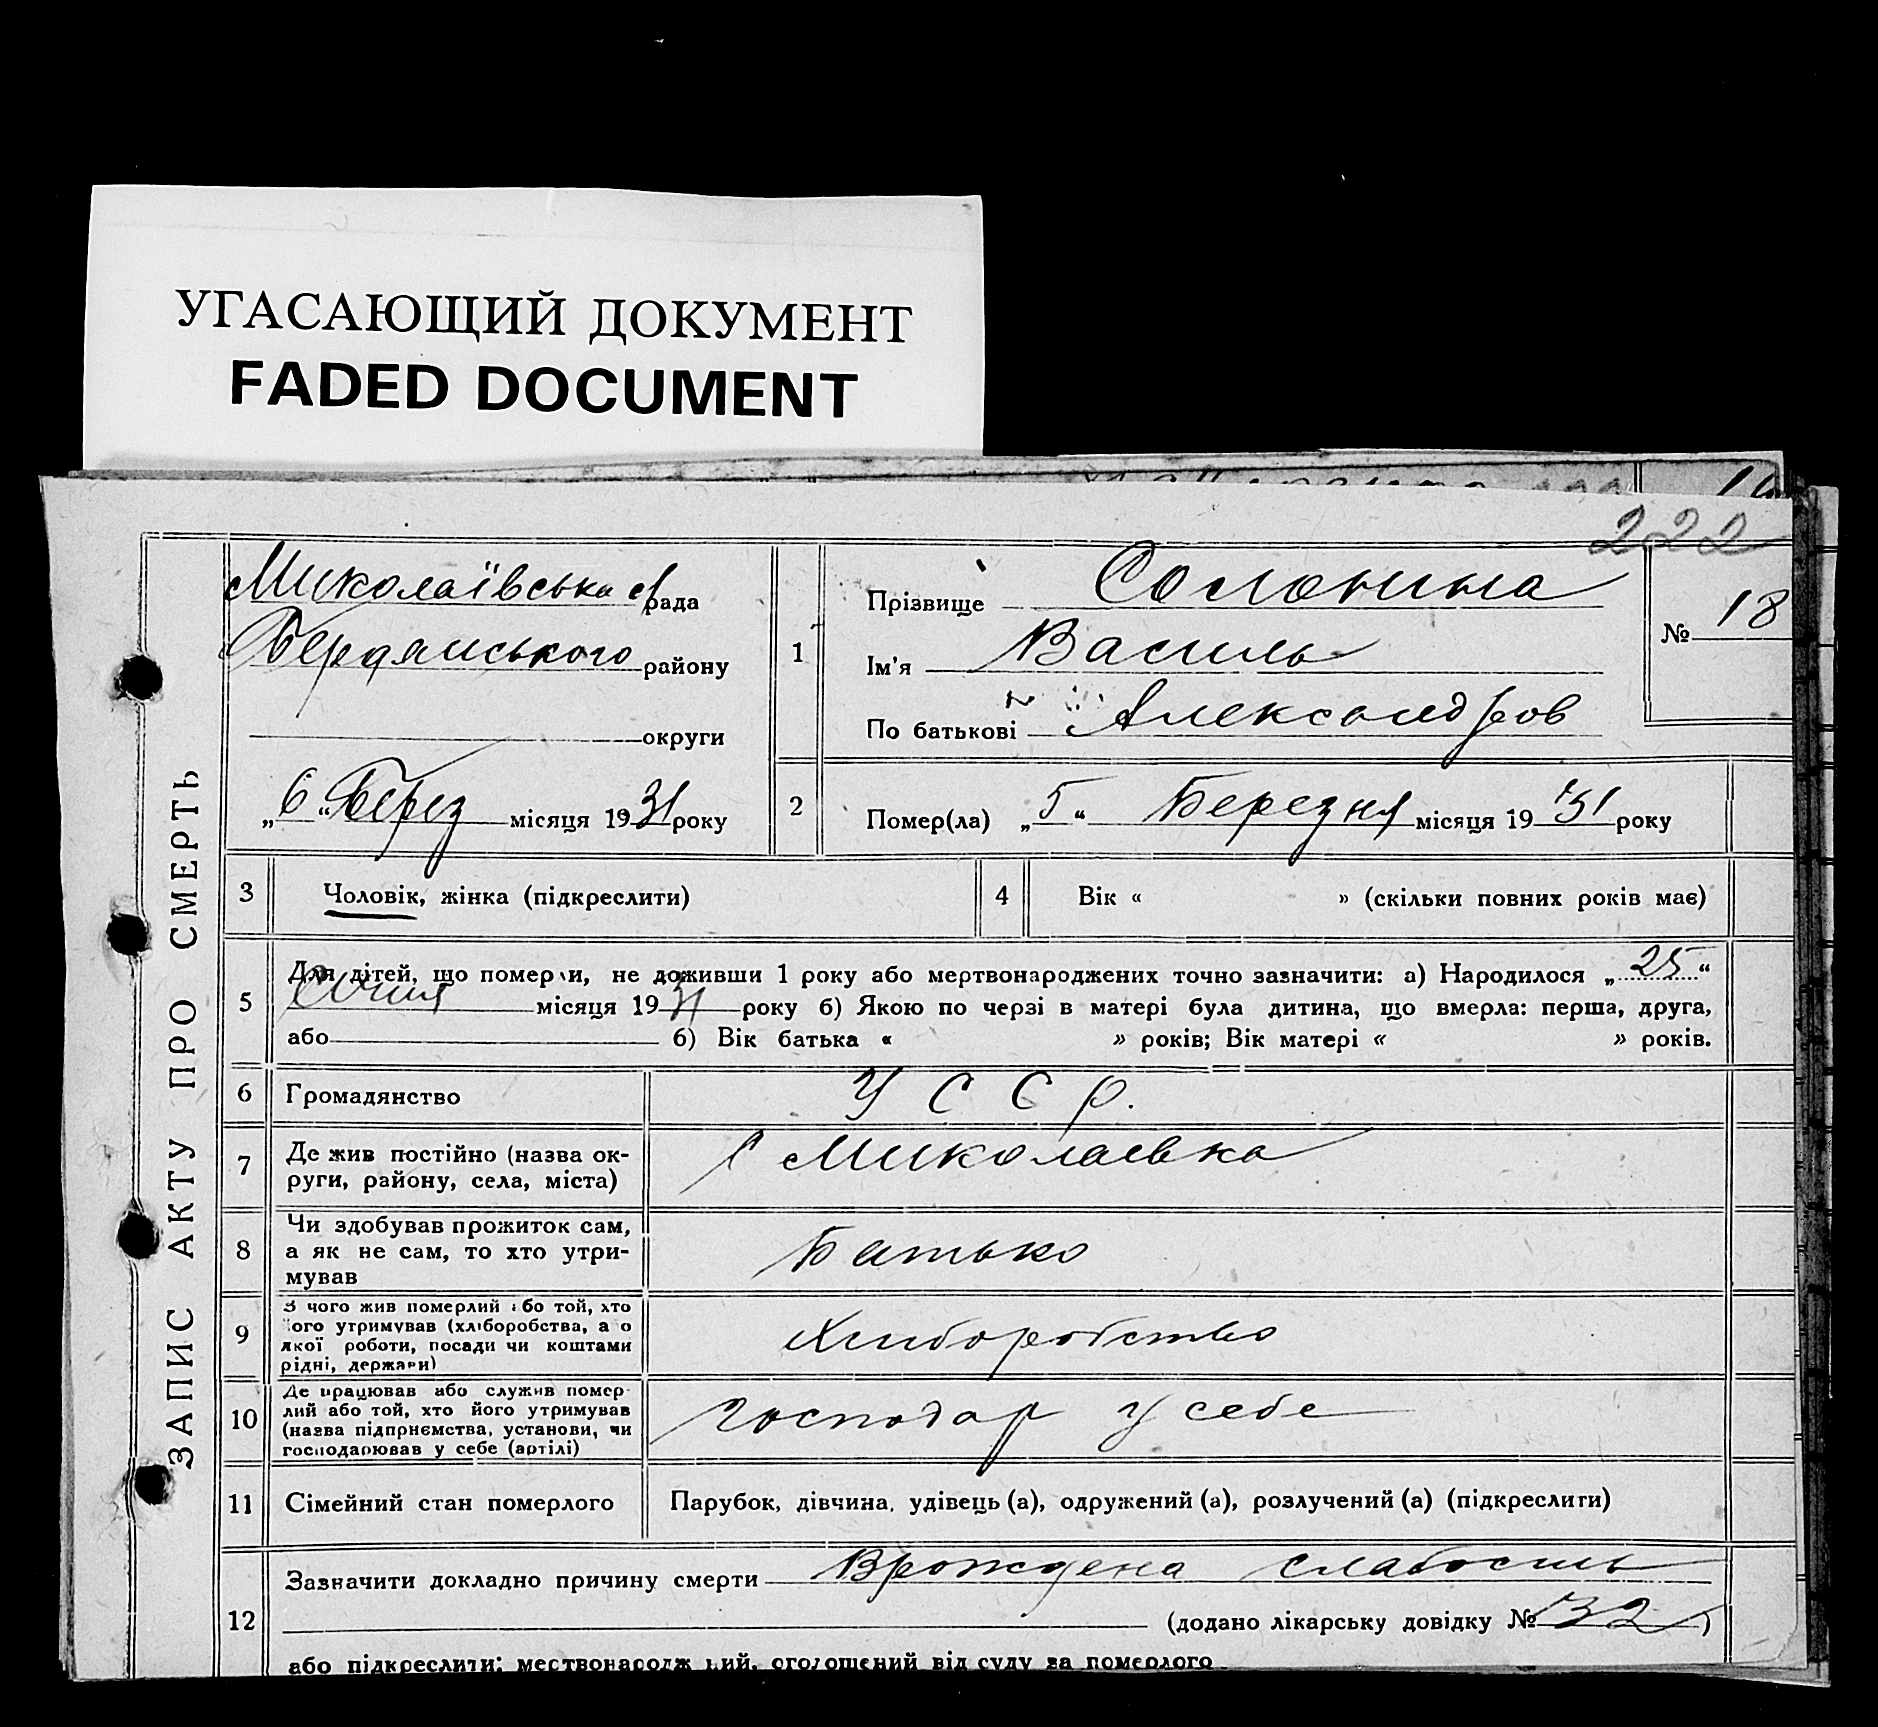 УГАСАЮЩИЙ ДОКУМЕНТ
FADED DOCUMENT
222
ЗАПИС АКТУ ПРО СМЕРТЬ
Миколаївська с/рада
Бердянського району
округи
„6“ Берез місяця 1931 року
1
Прізвище Солонина
Ім'я Василь
По батькові Александров
№ 18
2
Помер(ла) „5“ Березня місяця 1931 року
3 Чоловік, жінка (підкреслити)
4 Вік « » (скільки повних років має)
5 Для дітей, що померли, не доживши 1 року або мертвонароджених точно зазначити: а) Народилося „25“
Січня місяця 1931 року б) Якою по черзі в матері була дитина, що вмерла: перша, друга,
або б) Вік батька « » років; Вік матері « » років.
6 Громадянство У С С Р.
7 Де жив постійно (назва ок-
руги, району, села, міста)
с Миколаевка
8 Чи здобував прожиток сам,
а як не сам, то хто утри-
мував
Батько
9 З чого жив померлий або той, хто
його утримував (хліборобства, а о
якої роботи, посади чи коштами
рідні, держави)
Хлиборобство
10 Де працював або служив помер-
лий або той, хто його утримував
(назва підприємства, установи, чи
господарював у себе (артілі)
Господар у себе
11 Сімейний стан померлого Парубок, дівчина, удівець (а), одружений (а), розлучений (а) (підкреслити)
12 Зазначити докладно причину смерти Врождена слабость
(додано лікарську довідку № 32)
або підкреслити: мертвонароджений, оголошений від суду за померлого